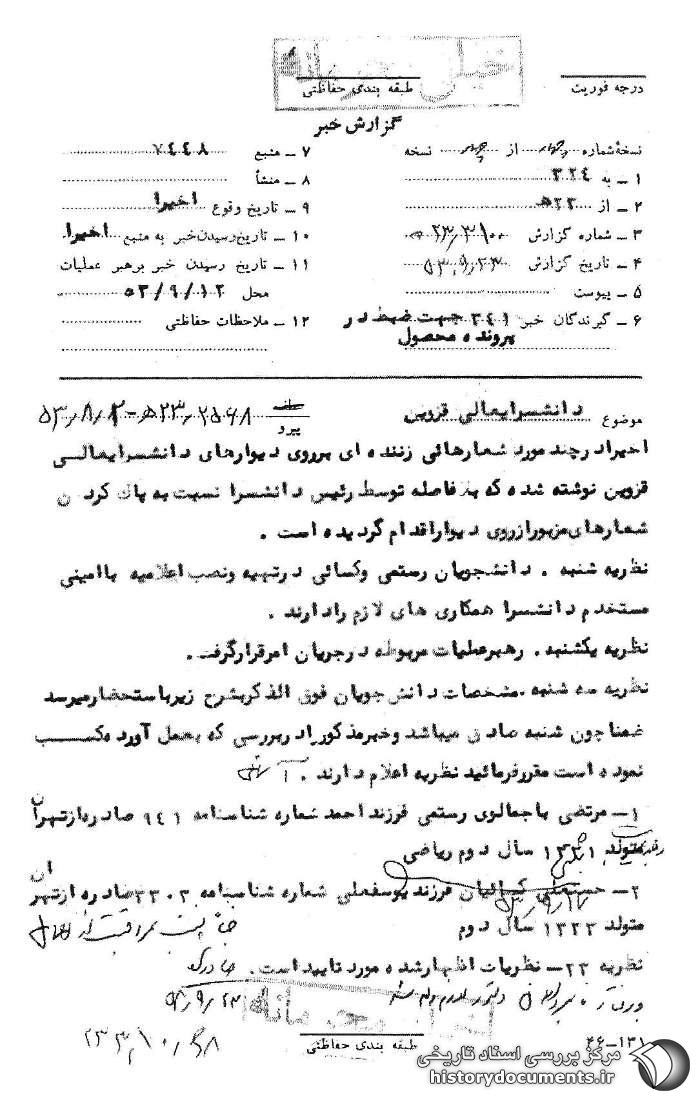 خیلی محرمانه
درجه فوریت
طبقه بندی حفاظتی
گزارش خبر
نسخهٔ شماره چهار از چهار نسخه
۱ ـ به ۳۲۴
۲ ـ از ۲۳ ه‍
۳ ـ شماره گزارش
۴ ـ تاریخ گزارش
۵ ـ پیوست
۶ ـ گیرندگان خبر ۳۴۱ جهت ضبط در
پرونده محصول
۷ ـ منبع ۷۴۴۸
۸ ـ منشأ
۹ ـ تاریخ وقوع اخیرا
۱۰ ـ تاریخ رسیدن خبر به منبع اخیرا
۱۱ ـ تاریخ رسیدن خبر برهبر عملیات
محل ۵۳/۹/۱۲
۱۲ ـ ملاحظات حفاظتی
موضوع دانشسرایعالی قزوین
پیرو ۲۵۶۸/ه‍۲۳-۵۳/۸/۲
اخیرا درچند مورد شعارهائی زننده ای برروی دیوارهای دانشسرایعالی
قزوین نوشته شده که بلافاصله توسط رئیس دانشسرا نسبت به پاک کردن
شعارهای مزبور ازروی دیوار اقدام گردیده است .
نظریه شنبه . دانشجویان رستمی وکسائی درتهیه ونصب اعلامیه باامینی
مستخدم دانشسرا همکاری های لازم را دارند .
نظریه یکشنبه . رهبرعملیات مربوطه درجریان امرقرارگرفت .
نظریه سه شنبه . مشخصات دانش جویان فوق الذکر بشرح زیرباستحضارمیرسد
ضمنا چون شنبه صادق میباشد وخبرمذکور را دربررسی که بعمل آورده کسب
نموده است مقررفرمائید نظریه اعلام دارند .
۱ـ مرتضی باجمالوی رستمی فرزند احمد شماره شناسنامه ۹۴۱ صادره ازتهران
متولد ۱۳۳۱ سال دوم ریاضی
۲ـ حسنعلی کسائیان فرزند یوسفعلی شماره شناسنامه ۳۳۰۲ صادره ازتهران
متولد ۱۳۳۳ سال دوم
نظریه ۲۳ـ نظریات اظهارشده مورد تاییداست .
طبقه بندی حفاظتی
۴۶-۱۳۱
مرکز بررسی اسناد تاریخی
historydocuments.ir